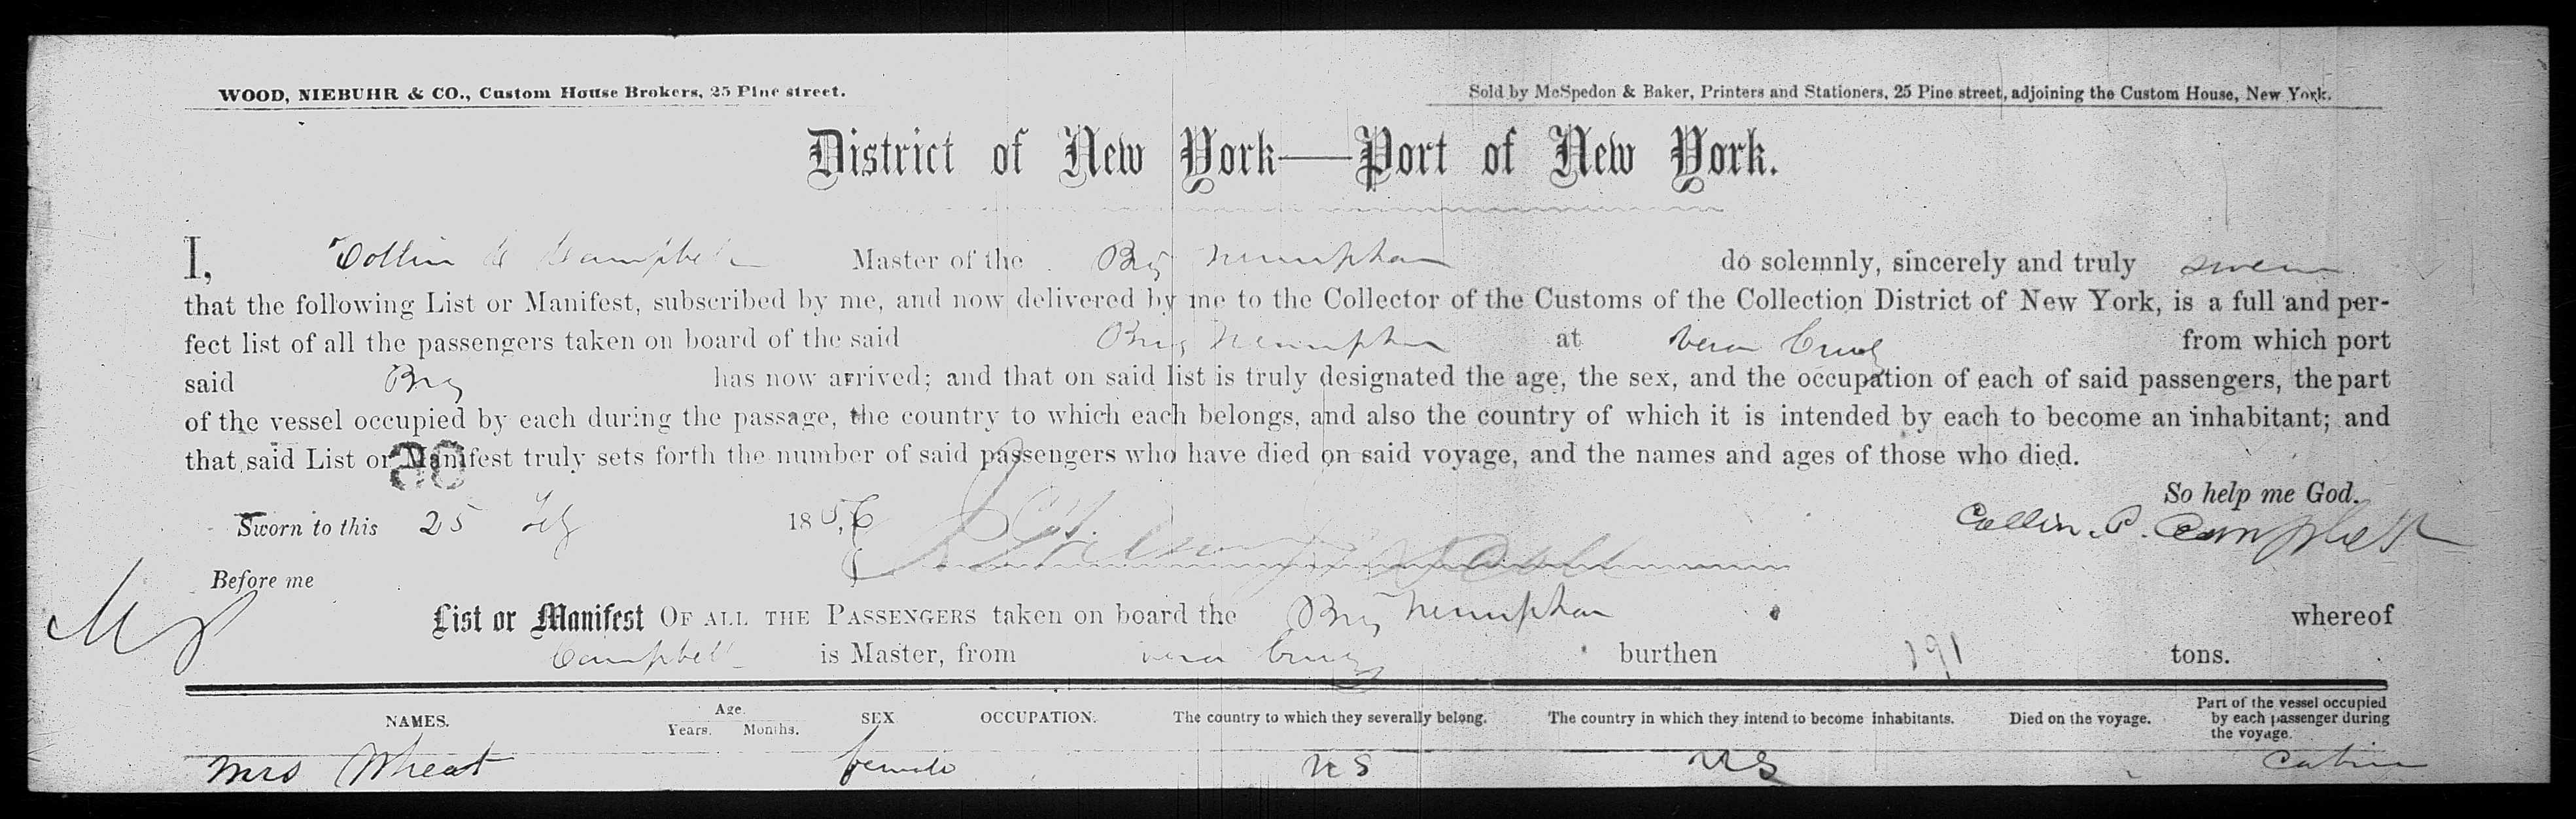 WOOD, NIEBUHR & CO., Custom House Brokers, 25 Pine street.
Sold by McSpedon & Baker, Printers and Stationers, 25 Pine street, adjoining the Custom House, New York.
District of New York—Port of New York.
I, Collin Campbell Master of the Brig do solemnly, sincerely and truly swear
that the following List or Manifest, subscribed by me, and now delivered by me to the Collector of the Customs of the Collection District of New York, is a full and per-
fect list of all the passengers taken on board of the said Brig at Vera Cruz from which port
said Brig has now arrived; and that on said list is truly designated the age, the sex, and the occupation of each of said passengers, the part
of the vessel occupied by each during the passage, the country to which each belongs, and also the country of which it is intended by each to become an inhabitant; and
that said List or Manifest truly sets forth the number of said passengers who have died on said voyage, and the names and ages of those who died.
So help me God.
Sworn to this 25 Feby 1856
Collin. P. Campbell
Before me
List or Manifest OF ALL THE PASSENGERS taken on board the Brig whereof
Campbell is Master, from Vera Cruz burthen 191 tons.
NAMES. Age. Years. Months. SEX OCCUPATION. The country to which they severally belong. The country in which they intend to become inhabitants. Died on the voyage. Part of the vessel occupied by each passenger during the voyage.
Mrs Wheat female US US Cabin